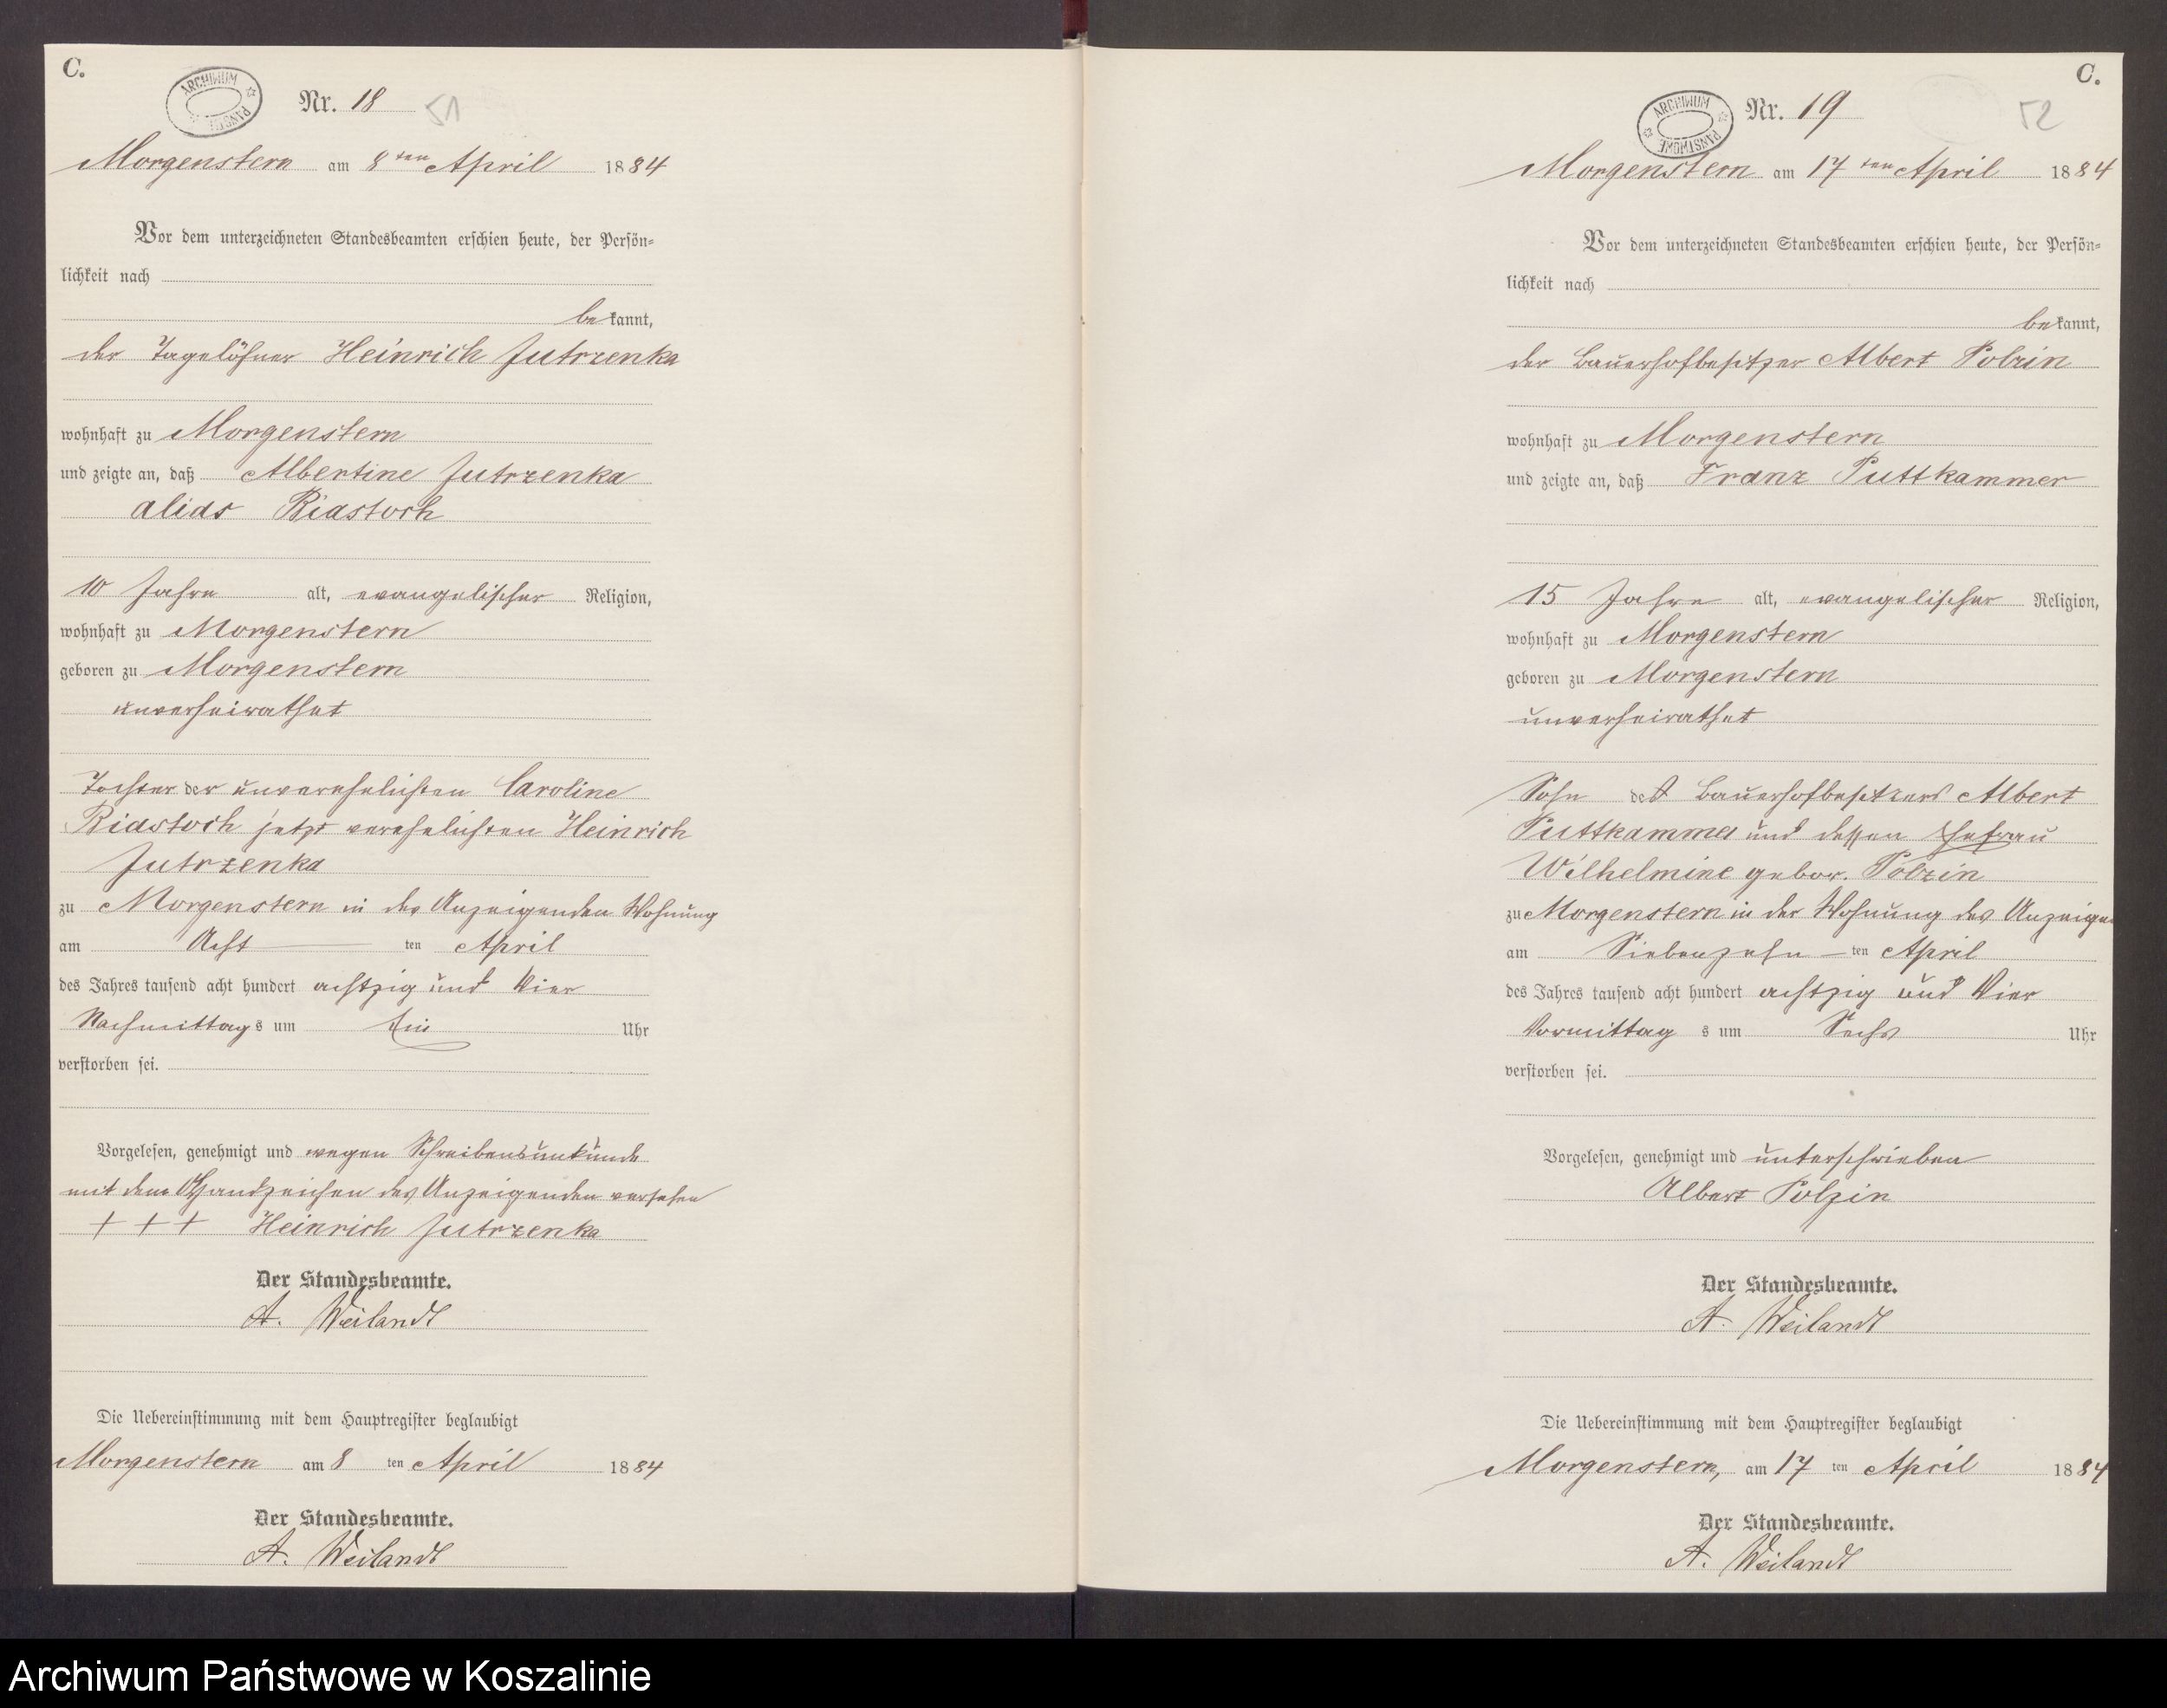 C.
ARCHIWUM PAŃSTWOWE
Nr. 18
51
Morgenstern am 8ten April 1884
Vor dem unterzeichneten Standesbeamten erschien heute, der Persön-
lichkeit nach
bekannt,
der Tagelöhner Heinrich Jutrzenka
wohnhaft zu Morgenstern
und zeigte an, daß Albertine Jutrzenka
alias Riastoch
10 Jahre alt, evangelischer Religion,
wohnhaft zu Morgenstern
geboren zu Morgenstern
unverheirathet
Tochter der unverehelichten Caroline
Riastoch jetzt verehelichten Heinrich
Jutrzenka
zu Morgenstern in des Anzeigenden Wohnung
am Acht ten April
des Jahres tausend acht hundert achtzig und Vier
Nachmittags um Ein Uhr
verstorben sei.
Vorgelesen, genehmigt und wegen Schreibensunkunde
mit dem Handzeichen des Anzeigenden versehen
+ + + Heinrich Jutrzenka
Der Standesbeamte.
A. Weilandt
Die Uebereinstimmung mit dem Hauptregister beglaubigt
Morgenstern am 8 ten April 1884
Der Standesbeamte.
A. Weilandt
C.
ARCHIWUM PAŃSTWOWE
Nr. 19
52
Morgenstern am 17ten April 1884
Vor dem unterzeichneten Standesbeamten erschien heute, der Persön-
lichkeit nach
bekannt,
der Bauerhofbesitzer Albert Polzin
wohnhaft zu Morgenstern
und zeigte an, daß Franz Puttkammer
15 Jahre alt, evangelischer Religion,
wohnhaft zu Morgenstern
geboren zu Morgenstern
unverheirathet
Sohn des Bauerhofbesitzers Albert
Puttkammer und dessen Ehefrau
Wilhelmine gebor. Polzin
zu Morgenstern in der Wohnung des Anzeigen
am Siebenzehn ten April
des Jahres tausend acht hundert achtzig und Vier
Vormittag s um Sechs Uhr
verstorben sei.
Vorgelesen, genehmigt und unterschrieben
Albert Polzin
Der Standesbeamte.
A. Weilandt
Die Uebereinstimmung mit dem Hauptregister beglaubigt
Morgenstern, am 17 ten April 1884
Der Standesbeamte.
A. Weilandt
Archiwum Państwowe w Koszalinie